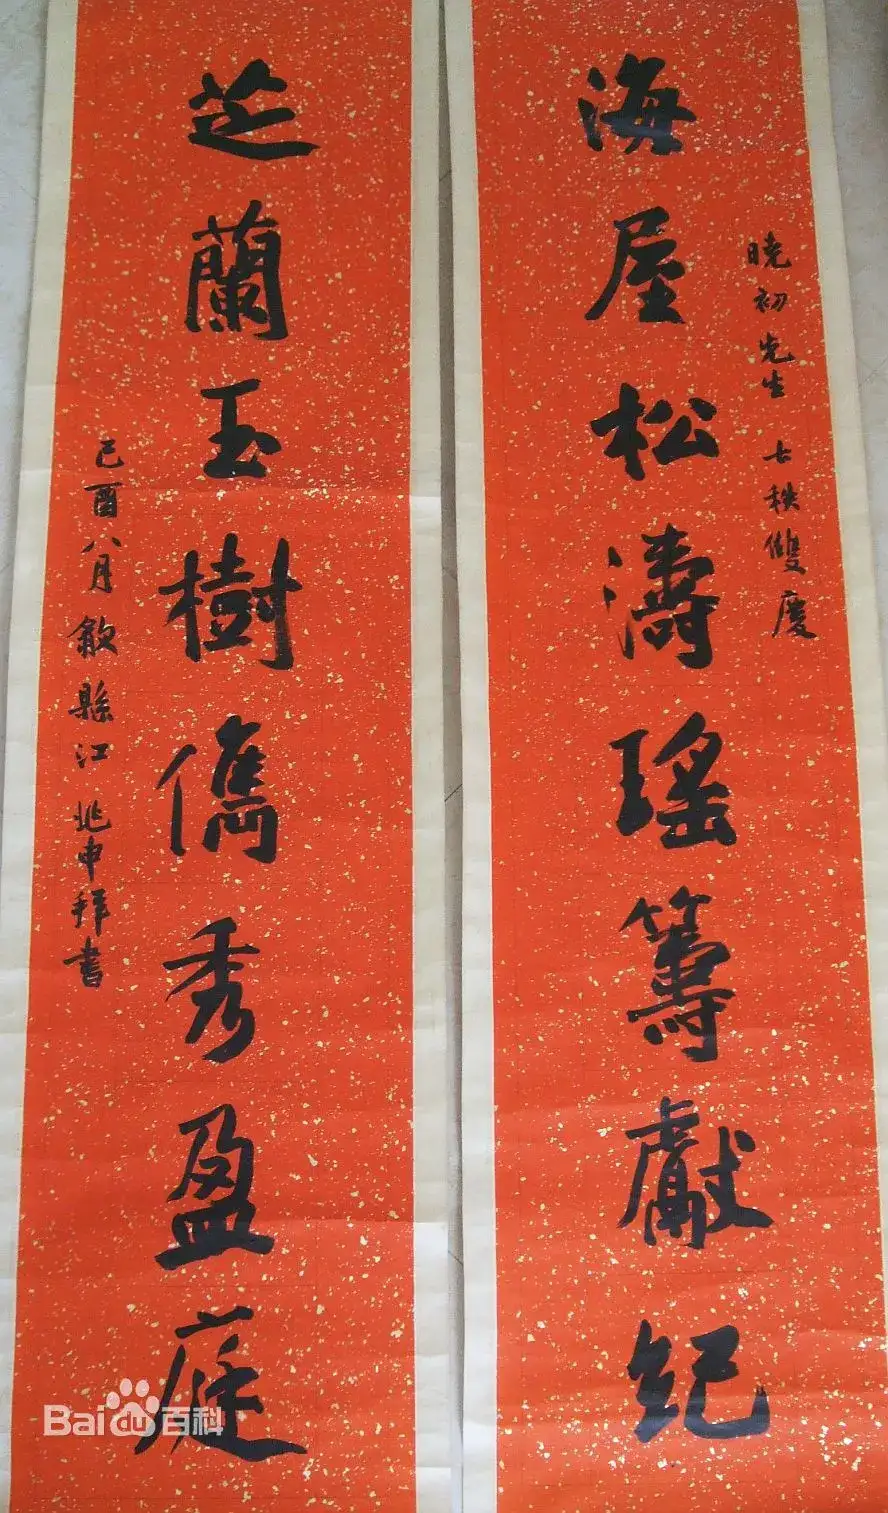 曉初先生 七秩雙慶
海屋松濤瑤籌獻紀
芝蘭玉樹儁秀盈庭
己酉八月歙縣江兆申拜書
Bai du 百科